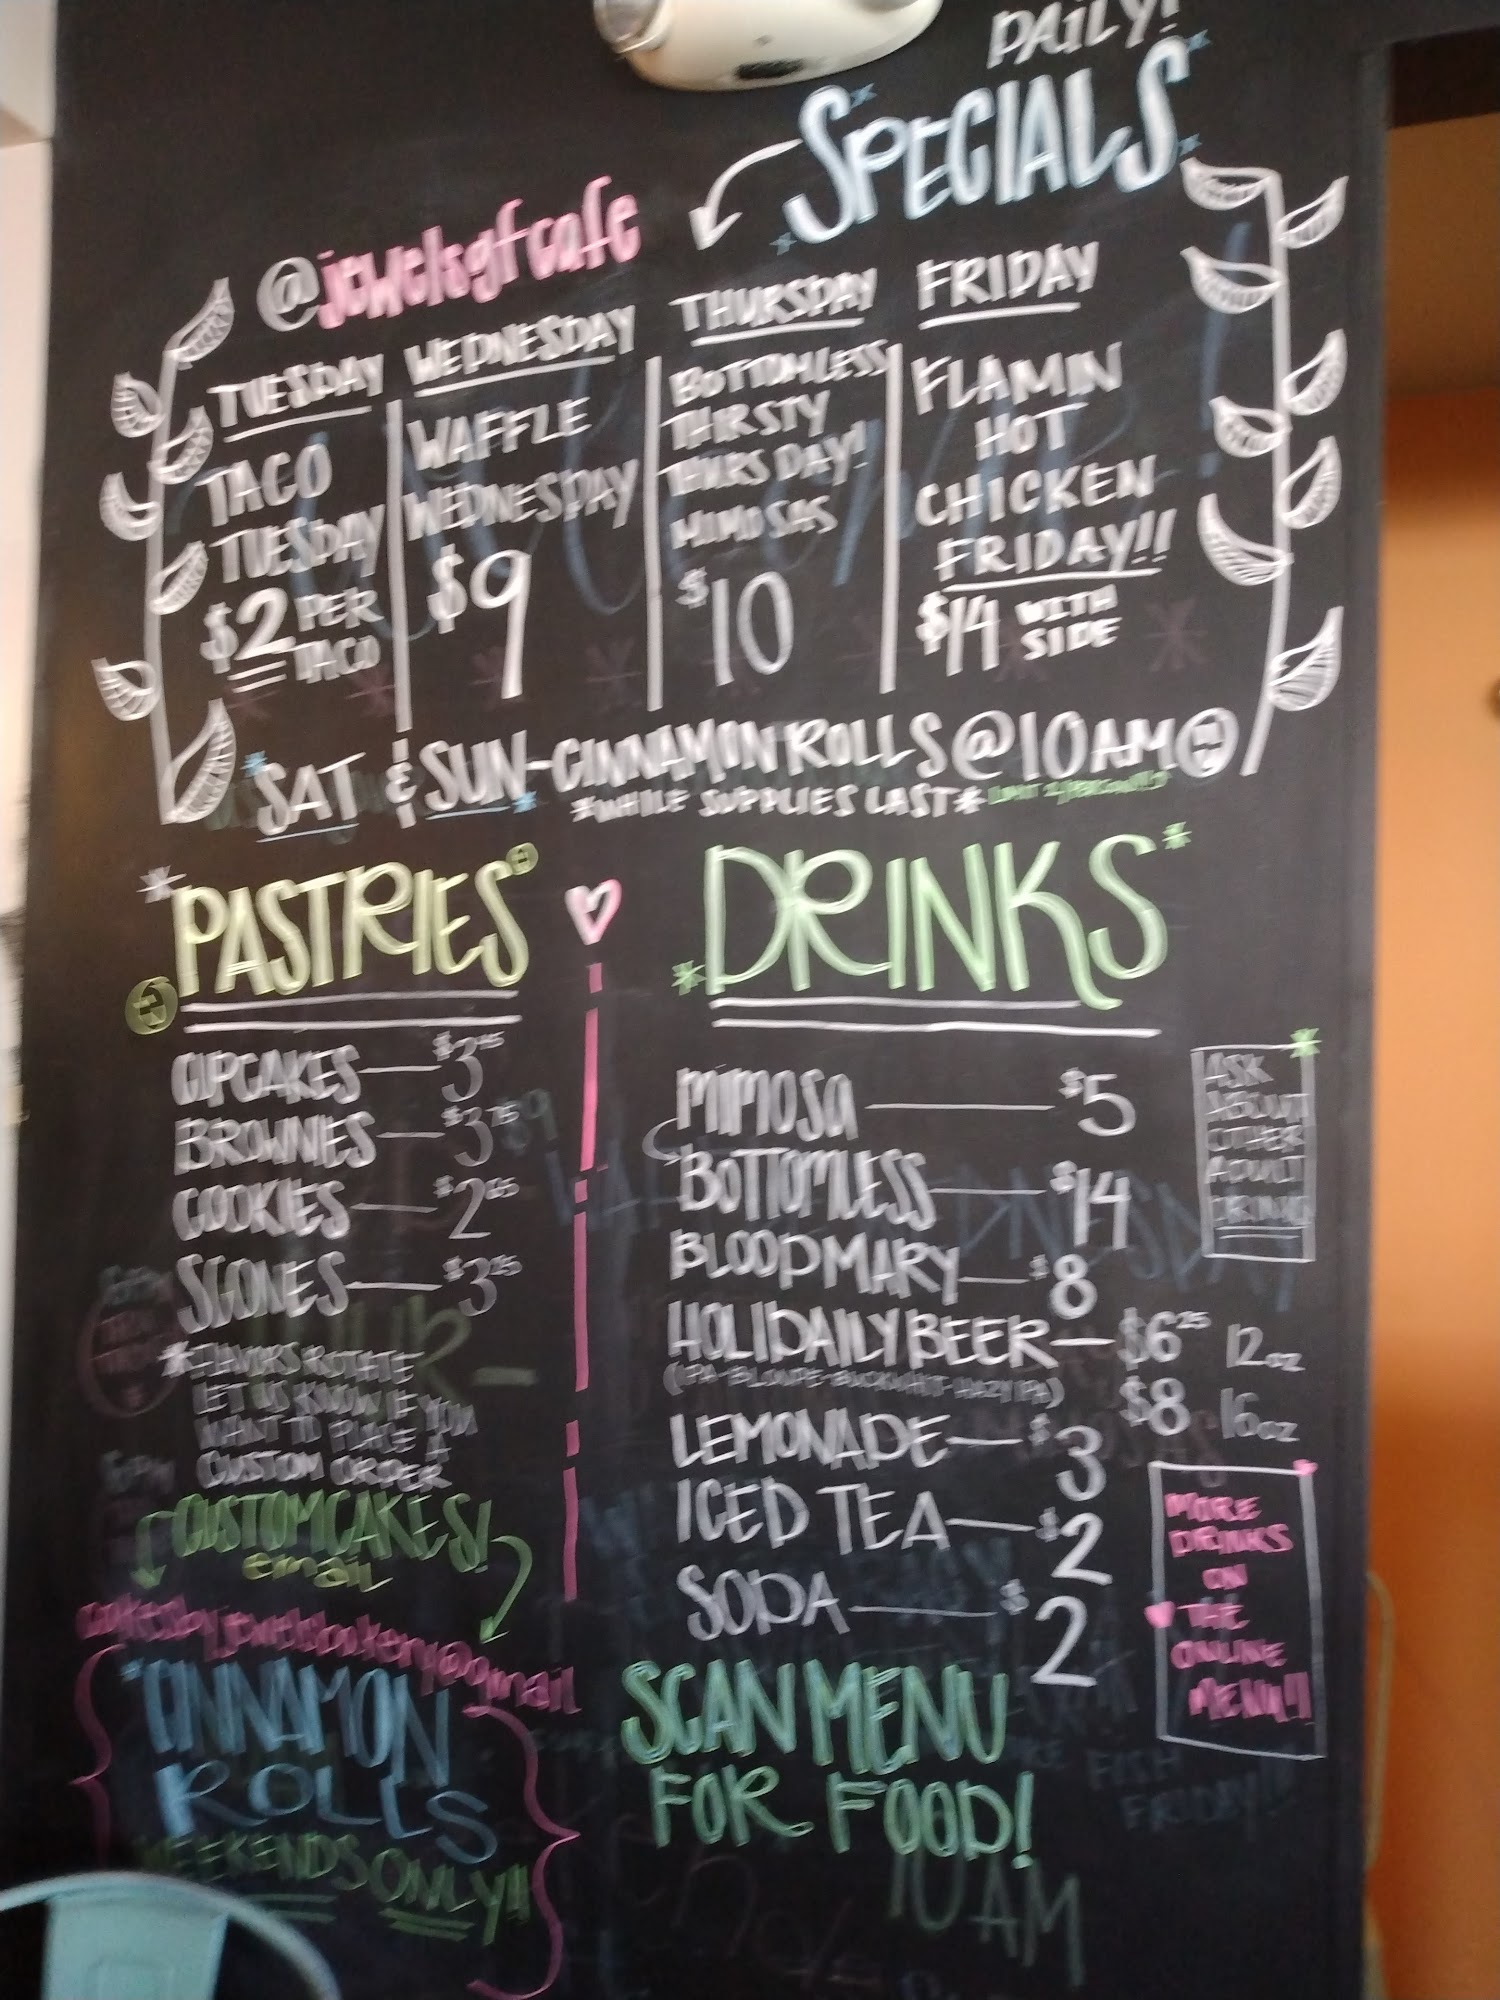 DAILY!
SPECIALS
@jewelsgfcafe
TUESDAY
TACO
TUESDAY
$2 PER
TACO
WEDNESDAY
WAFFLE
WEDNESDAY
$9
THURSDAY
BOTTOMLESS
THIRSTY
THURSDAY!
MIMOSAS
$10
FRIDAY
FLAMIN
HOT
CHICKEN
FRIDAY!!
$14 WITH
SIDE
SAT & SUN-CINNAMON ROLLS @10AM
*WHILE SUPPLIES LAST*
*PASTRIES
CUPCAKES — $3
BROWNIES — $3.75
COOKIES — $2
SCONES — $3.25
*FLAVORS ROTATE
LET US KNOW IF YOU
WANT TO PLACE A
CUSTOM ORDER
CUSTOM CAKES!
email
cakesbyjewelsbakery@gmail
*CINNAMON
ROLLS
WEEKENDS ONLY!!
*DRINKS*
MIMOSA — $5
BOTTOMLESS — $14
BLOODMARY — $8
HOLIDAILY BEER — $6.25 12oz
$8 16oz
LEMONADE — $3
ICED TEA — $2
SODA — $2
ASK
ABOUT
OTHER
ADULT
DRINKS
MORE
DRINKS
ON
THE
ONLINE
MENU!!
SCAN MENU
FOR FOOD!
FISH
FRIDAY!!
10AM